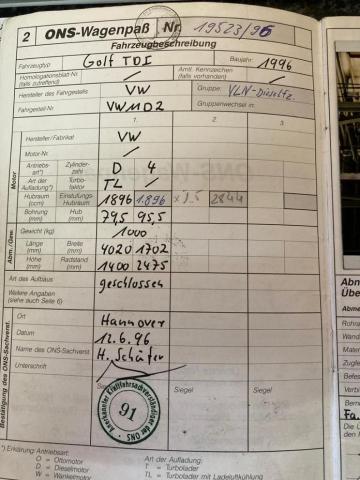 2 ONS-Wagenpaß Nr. 19523/96
Fahrzeugbeschreibung
Fahrzeugtyp Golf TDI Baujahr: 1996
Homologationsblatt-Nr. (falls zutreffend) / Amtl. Kennzeichen (falls vorhanden) /
Hersteller des Fahrgestells VW Gruppe: VLN-Dieselfz.
Fahrgestell-Nr. VWMD2 Gruppenwechsel in:
1. 2. 3.
Motor
Hersteller/Fabrikat VW
Motor-Nr. /
Antriebsart*) Zylinderzahl D 4
Art der Aufladung*) Turbofaktor TL /
Hubraum (ccm) Einstufungs-Hubraum 1896 1.896 x 1.5 2844
Bohrung (mm) Hub (mm) 79,5 95,5
Abm./Gew.
Gewicht (kg) 1000
Länge (mm) Breite (mm) 4020 1702
Höhe (mm) Radstand (mm) 1400 2475
Art des Aufbaus geschlossen
Weitere Angaben (siehe auch Seite 6)
Bestätigung des ONS-Sachverst.
Ort Hannover
Datum 12.6.96
Name des ONS-Sachverst. H. Schäfer
Unterschrift
Anerkannter Kraftfahrsachverständiger der ONS 91
Siegel Siegel
*) Erklärung Antriebsart: Art der Aufladung:
O = Ottomotor T = Turbolader
D = Dieselmotor TL = Turbolader mit Ladeluftkühlung
W = Wankelmotor